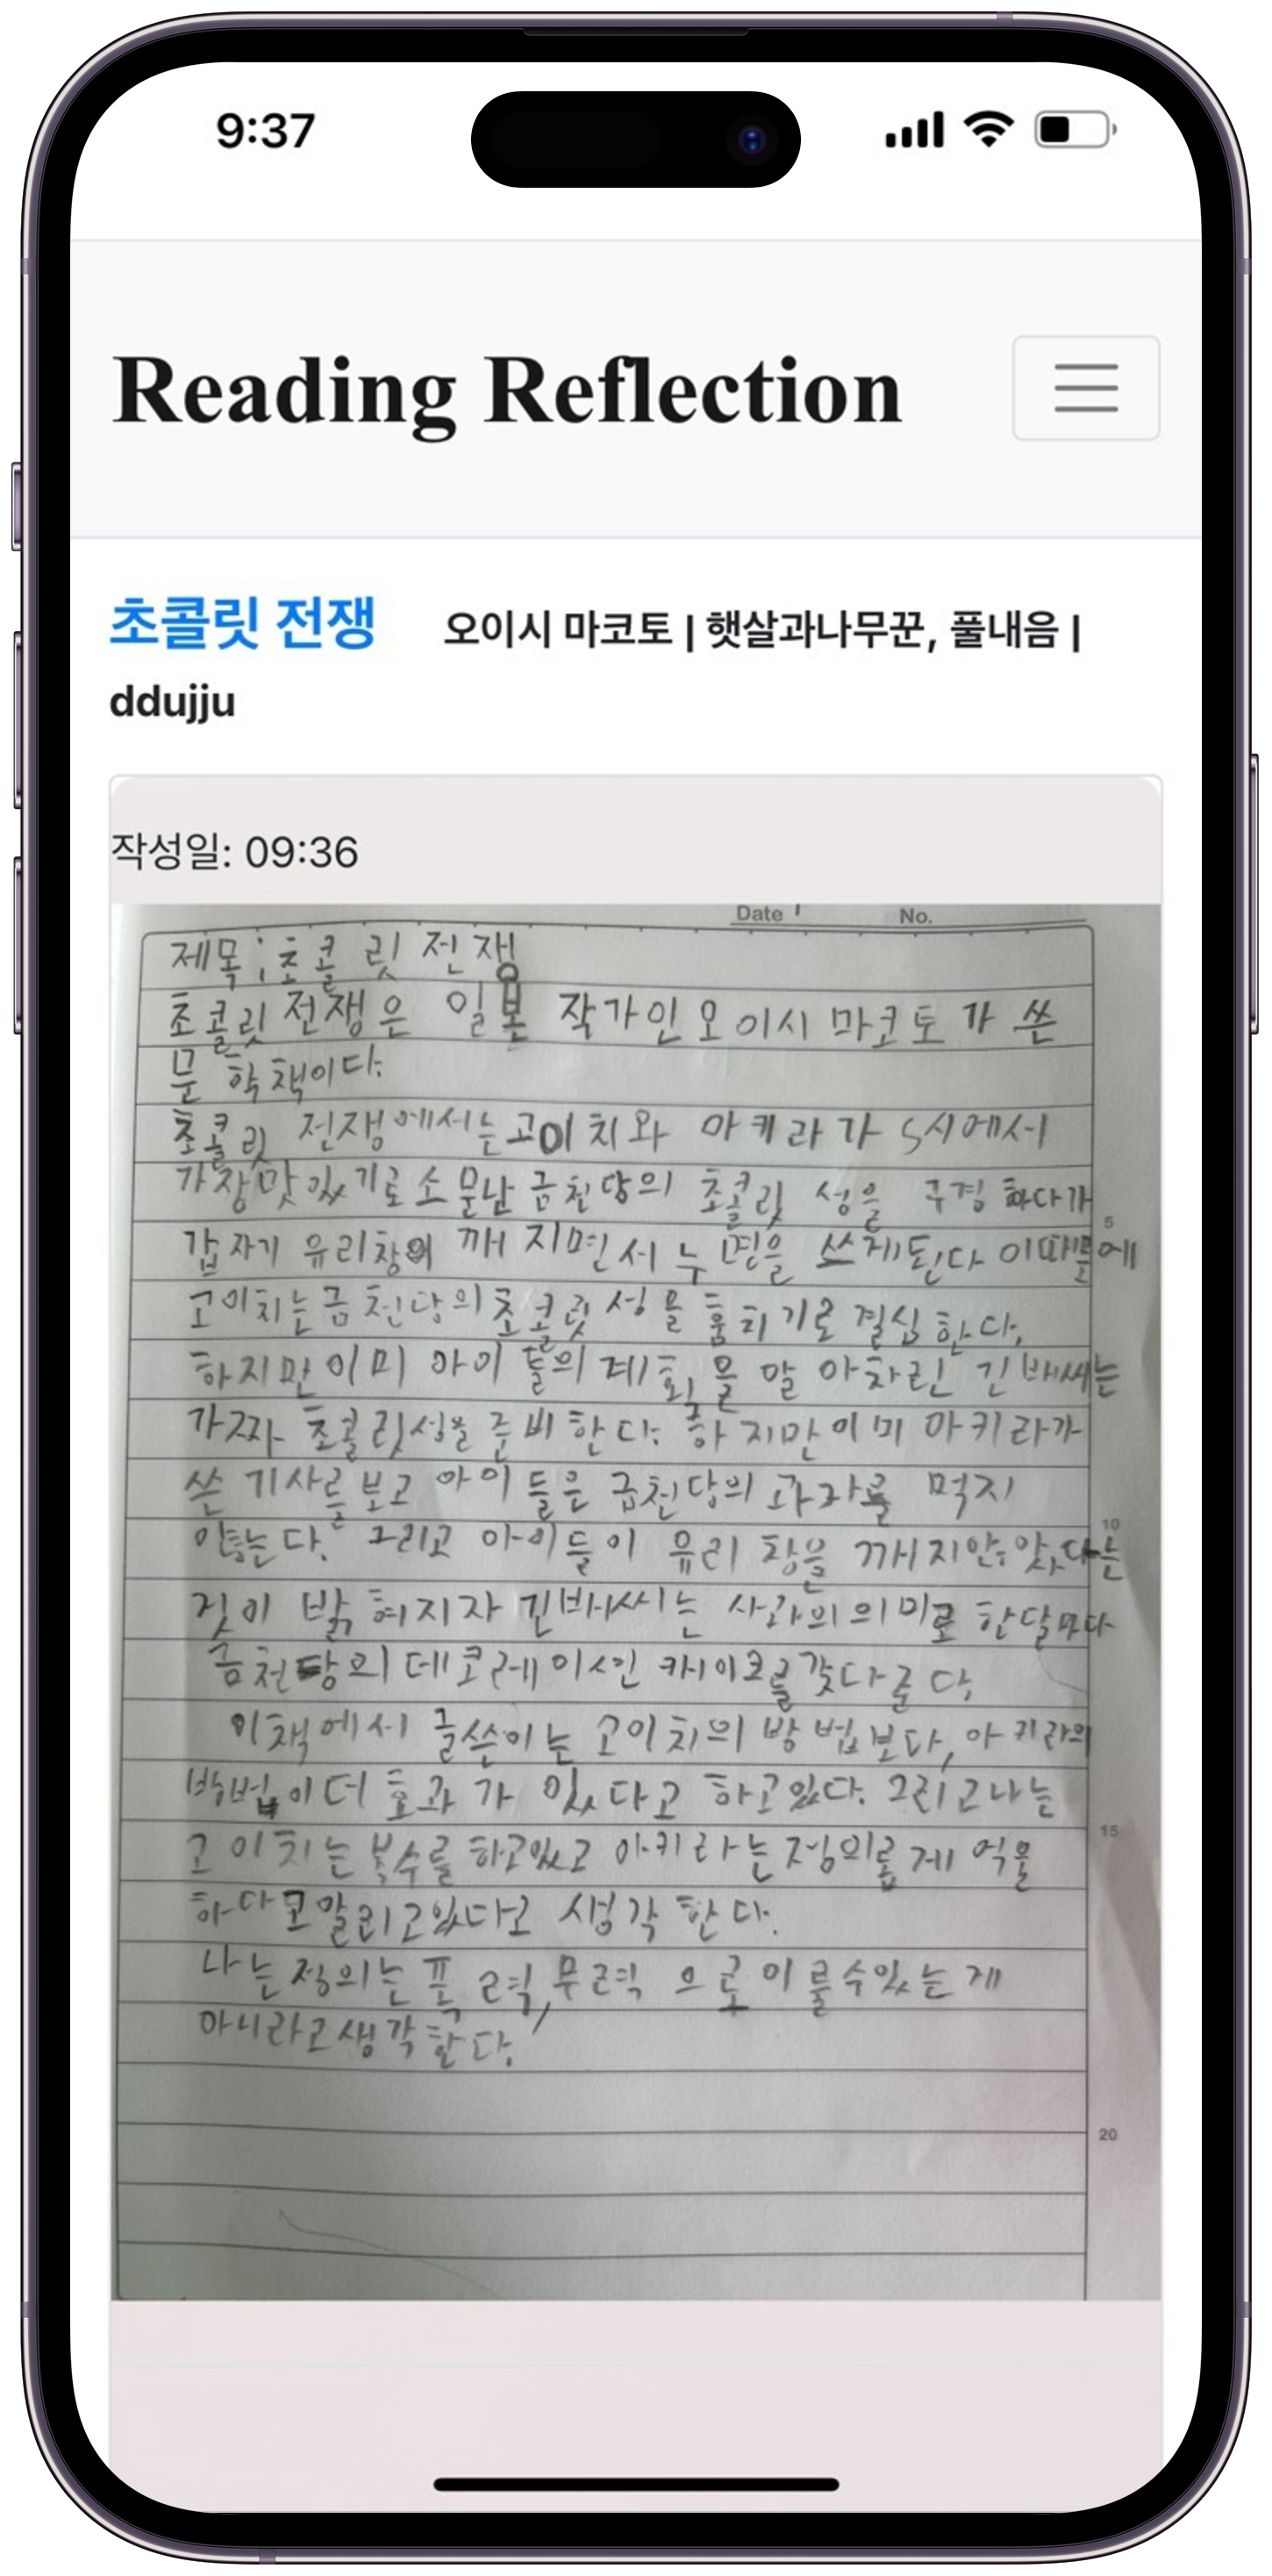 9:37
Reading Reflection
초콜릿 전쟁 오이시 마코토 | 햇살과나무꾼, 풀내음 |
ddujju
작성일: 09:36
Date No.
제목: 초콜릿 전쟁
초콜릿 전쟁은 일본 작가인 오이시 마코토가 쓴
문학책이다.
초콜릿 전쟁에서는 고이치와 아키라가 S시에서
가장 맛있기로 소문난 금천당의 초콜릿 성을 구경 하다가
갑자기 유리창이 깨지면서 누명을 쓰게된다 이때문에
고이치는 금천당의 초콜릿 성을 훔치기로 결심 한다.
하지만 이미 아이들의 계획을 알아차린 긴바씨는
가짜 초콜릿성을 준비한다. 하지만 이미 아키라가
쓴 기사를보고 아이들은 금천당의 과자를 먹지
않는다. 그리고 아이들이 유리창을 깨지안았다는
것이 밝혀지자 긴바씨는 사과의 의미로 한달마다
금천당의 데코레이션 케이크를 갖다준다.
이책에서 글쓴이는 고이치의 방법보다, 아키라의
방법이 더 효과가 있다고 하고있다. 그리고나는
고이치는 복수를 하고있고 아키라는 정의롭게 억울
하다고알리고있다고 생각한다.
나는 정의는 폭력, 무력으로 이룰수있는게
아니라고 생각한다.
5
10
15
20